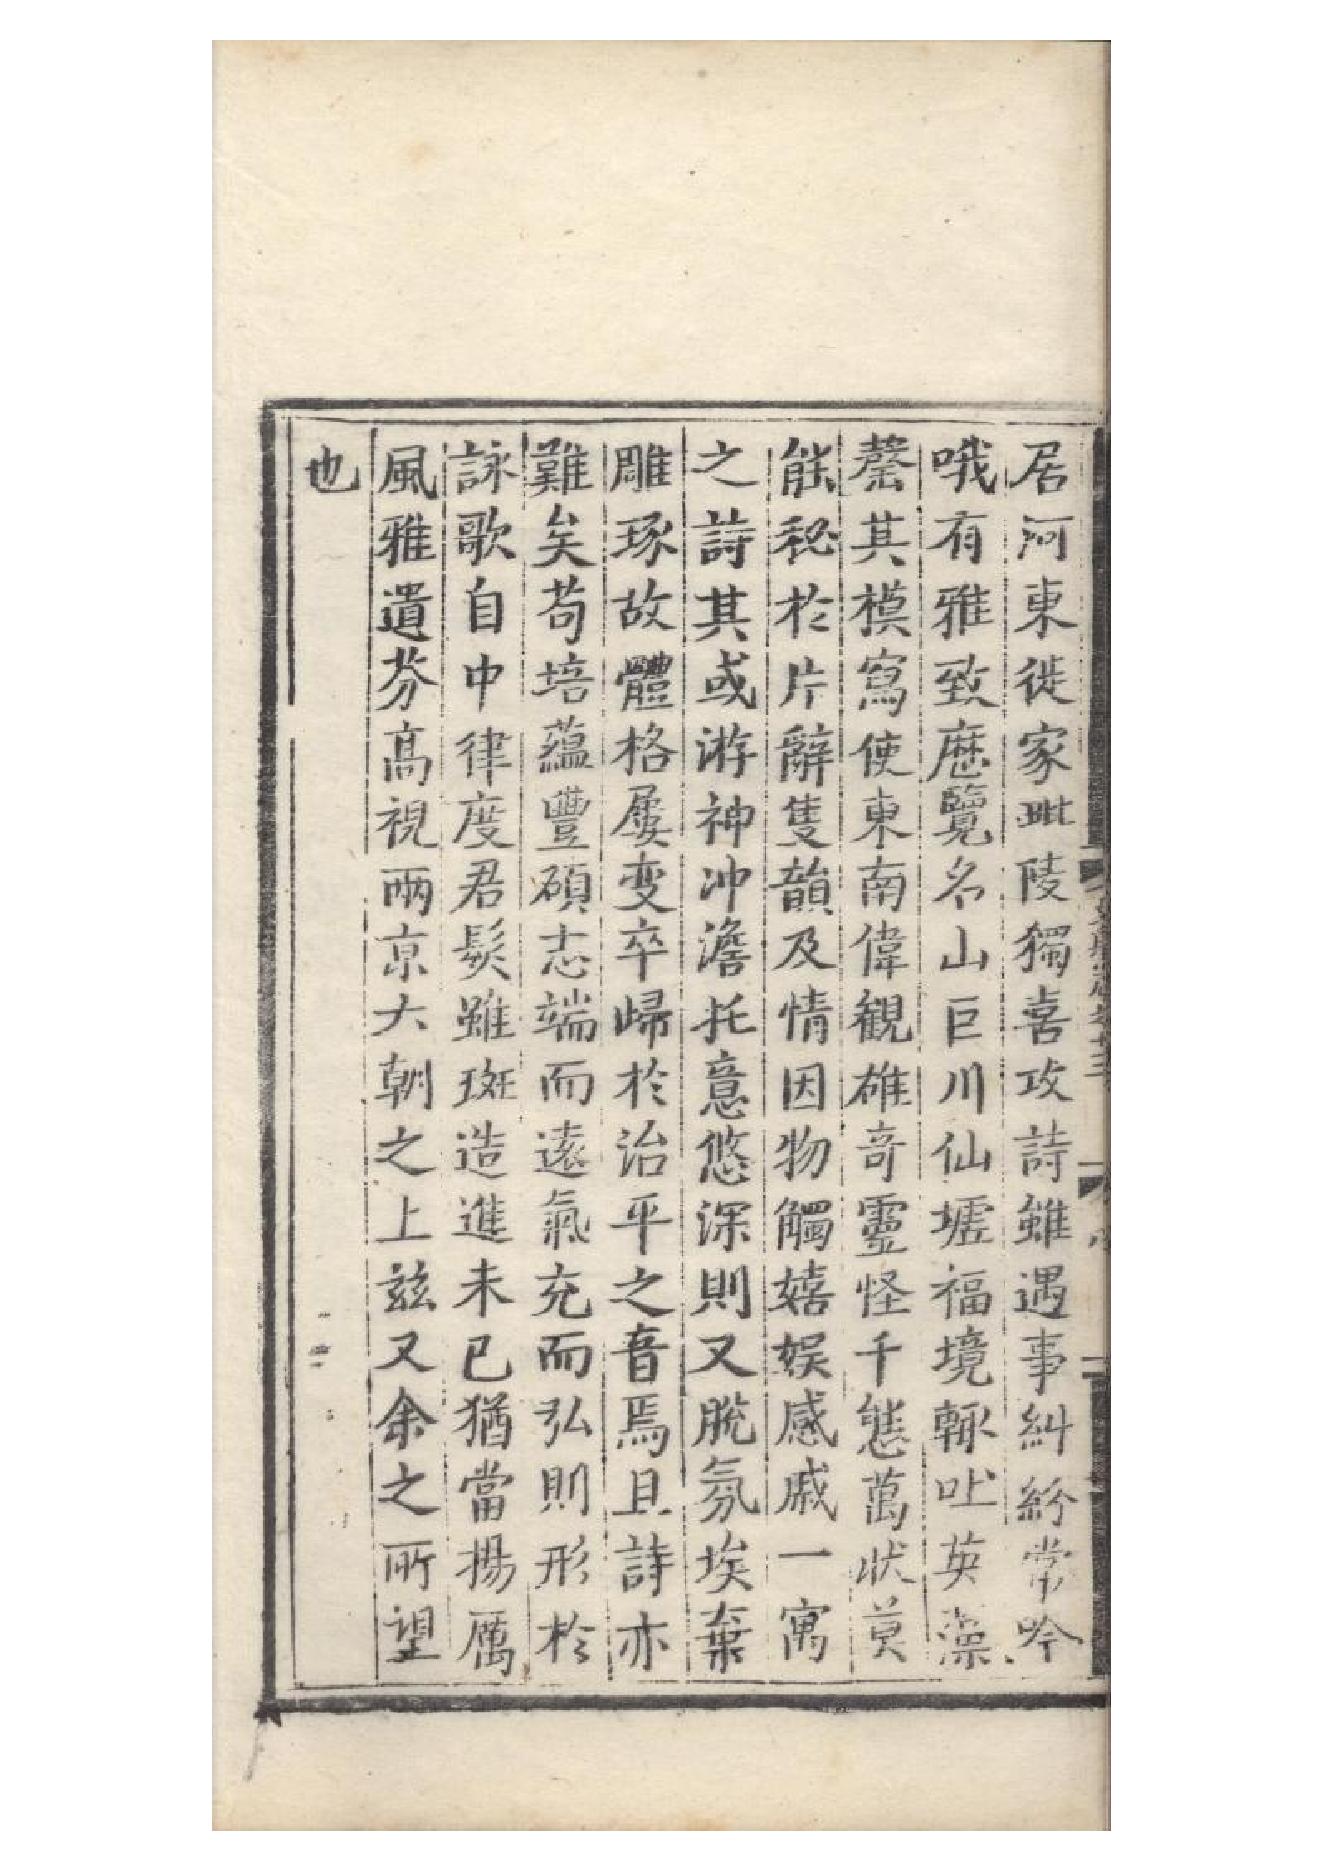 居河東徙家毗陵獨喜攻詩雖遇事糾紛常吟
哦有雅致歷覽名山巨川仙墟福境輙吐英藻
罄其模寫使東南偉観雄竒靈怪千態萬狀莫
能秘於片辭隻韻及情因物觸嬉娱感戚一寓
之詩其或游神冲澹托意悠深則又脫氛埃棄
雕琢故體格屢变卒歸於治平之音焉且詩亦
難矣苟培蘊豐碩志端而遠氣充而弘則形於
詠歌自中律度君髮雖斑造進未已猶當揚厲
風雅遺芬髙視兩京六朝之上兹又余之所望
也